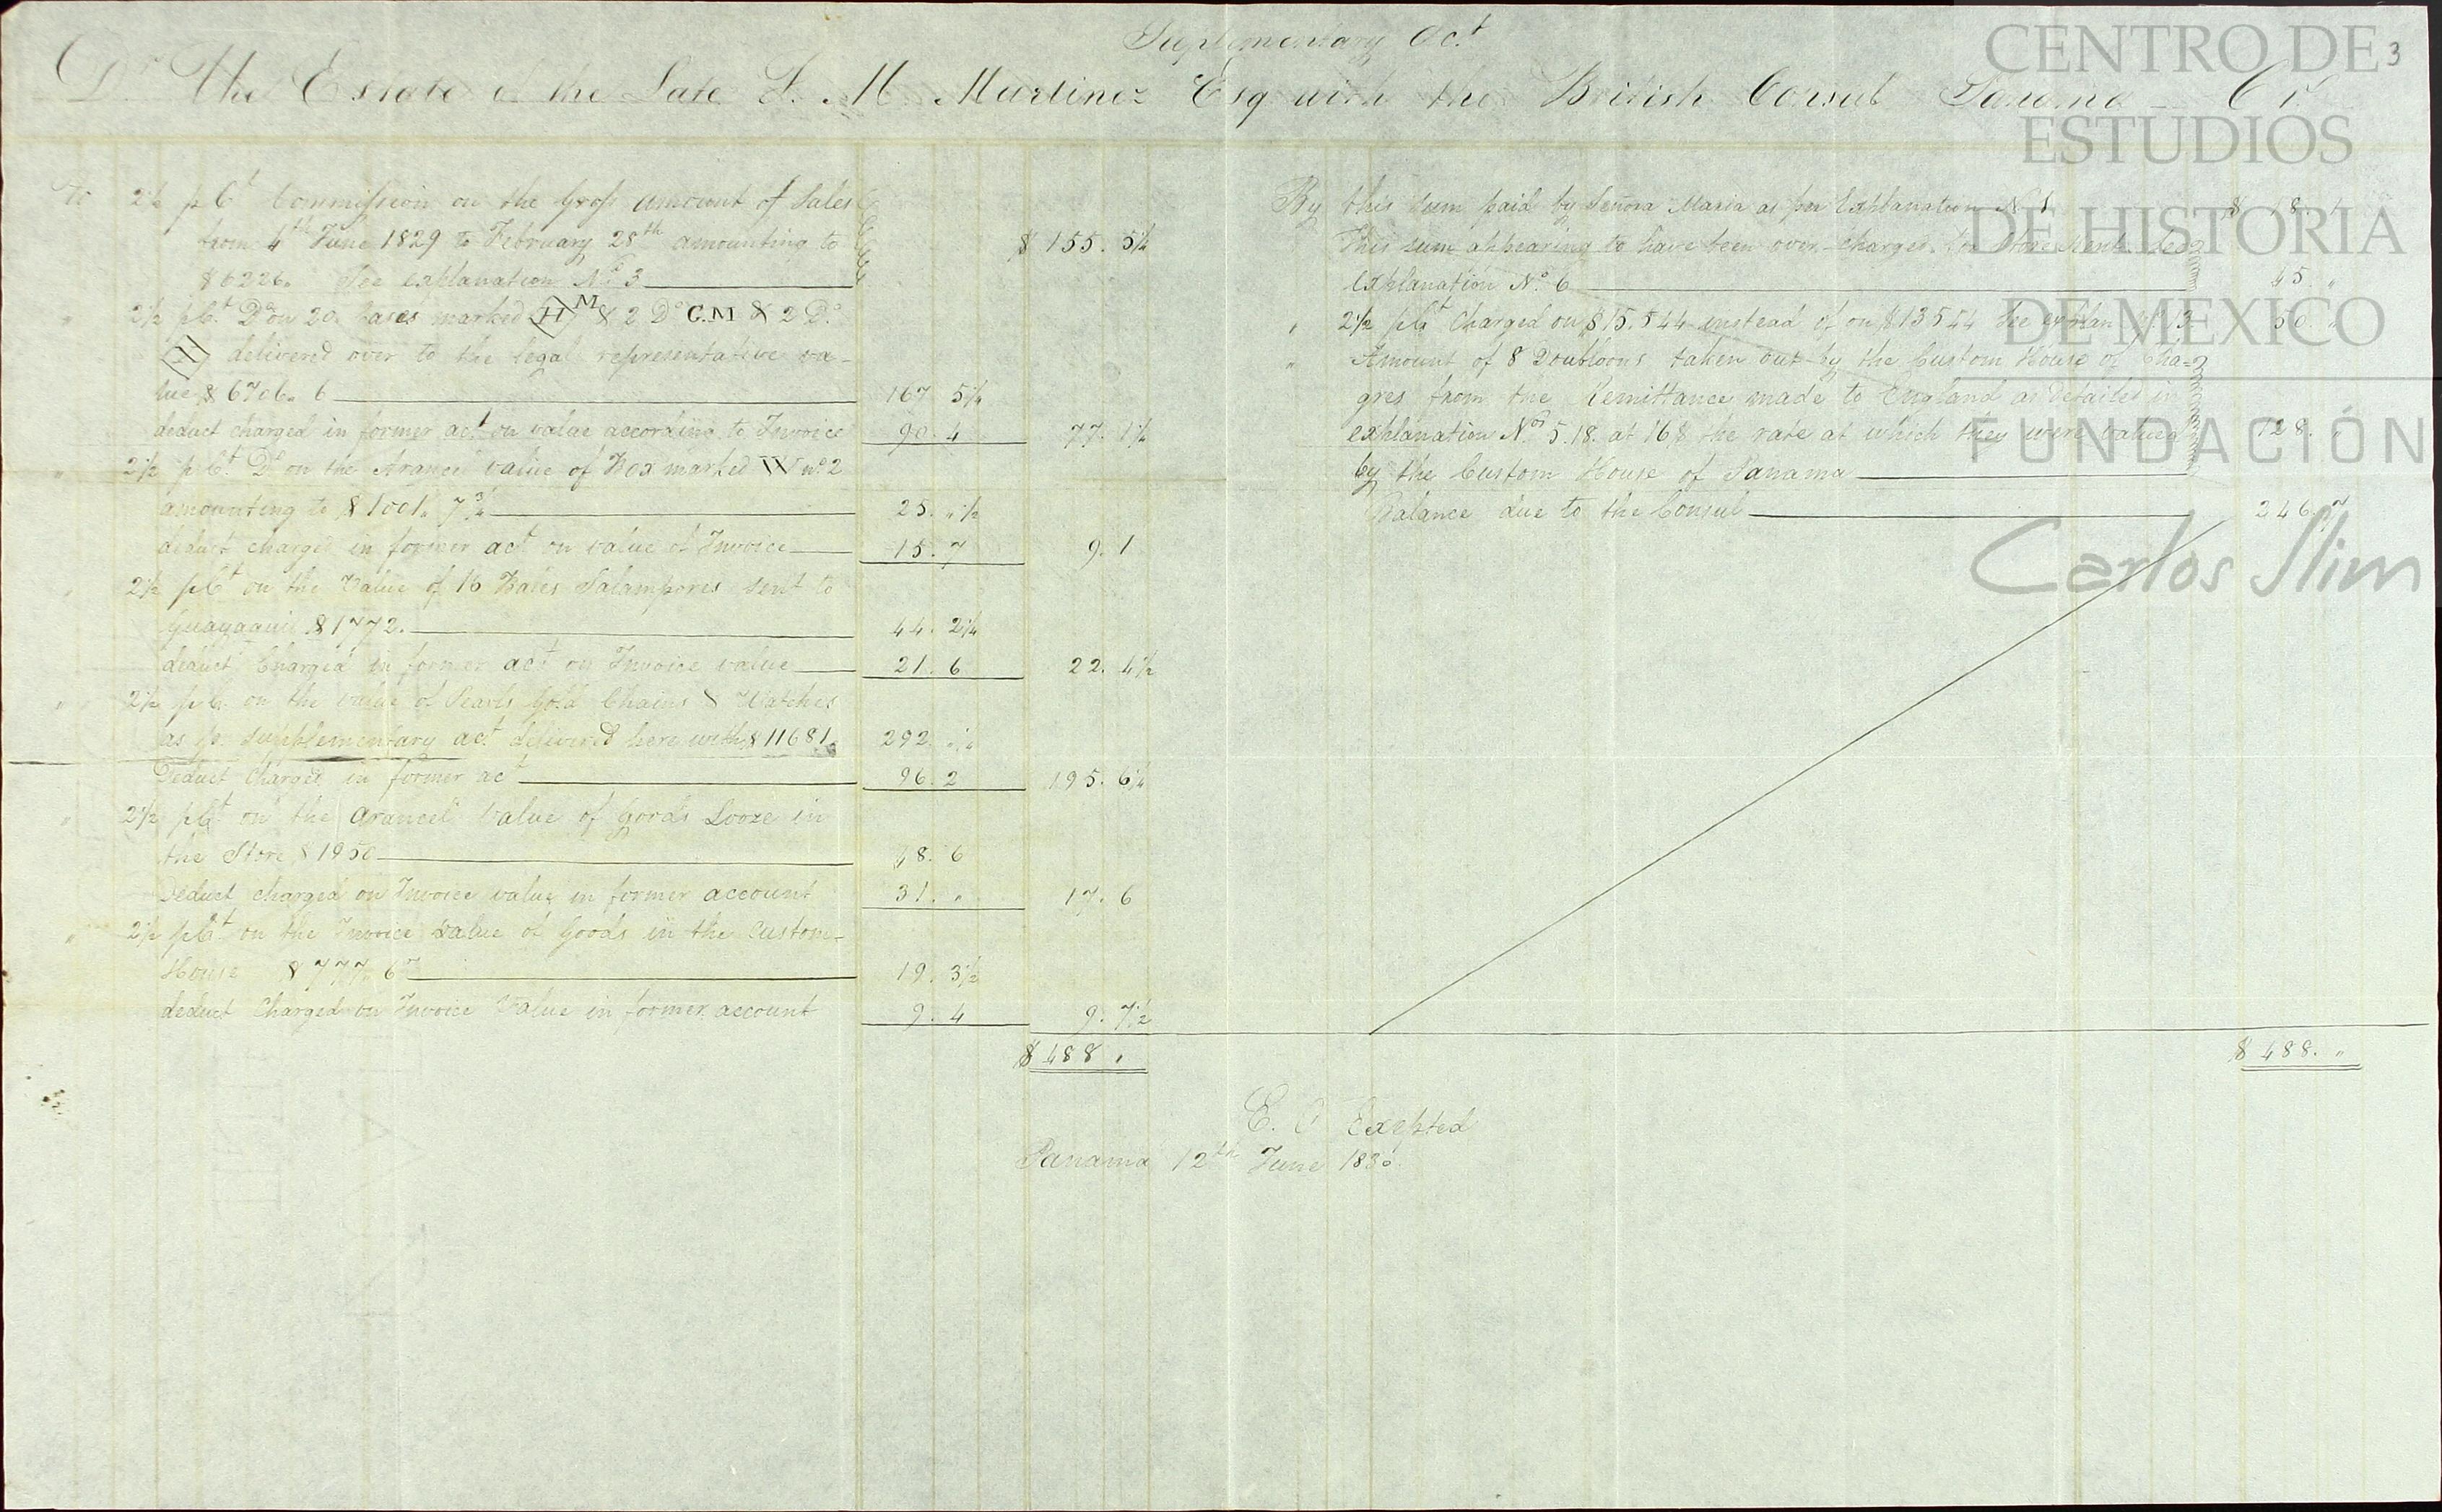 Suplementary Act.
3
Dr. The Estate of the Late F. M. Martinez Esq with the British Consul Panama Cr.
To 2½ p Ct Commission on the Gross amount of Sales
from 4th June 1829 to February 28th amounting to $ 155. 5¼
$6226. See explanation No. 3
" 2½ p Ct. Do on 20 Bales marked H M & 2 Do G.M & 2 Do.
H delivered over to the legal representative va-
lue $ 6706. 6 167 5¼
deduct charged in former act on value according to Invoice 90. 4 77. 1¼
" 2½ p Ct. Do on the Arancel value of Box marked W no. 2
amounting to $ 1001. 7¾ 25. " ½
deduct charged in former act on value of Invoice 15. 7 9. 1
" 2½ p Ct on the Value of 16 Bales Salampores sent to
Guayaquil $ 1772. 44. 2¼
deduct Charged in former act on Invoice value 21. 6 22. 4½
" 2½ p Ct. on the value of Pearls Gold Chains & Watches
as pr. supplementary act. delivered here with $ 11681. 292. " ¼
Deduct Charged in former act 96. 2 195. 6¼
" 2½ p Ct on the Arancel value of Goods Looze in
the Store $ 1950 48. 6
Deduct charged on Invoice value in former account 31. " 17. 6
" 2½ p Ct on the Invoice value of Goods in the Custom-
House $ 777. 6 19. 3½
deduct Charged on Invoice Value in former account 9. 4 9. 7½
$ 488 "
By this sum paid by Señora Maria as per Explanation No. 1 $ 18.
This sum appearing to have been over-charged for Store Rent See
explanation No. 6 45. "
" 2½ p Ct Charged on $ 15.544 instead of on $ 13544 See explan No. 13 50. "
" Amount of 8 Doubloons taken out by the Custom House of Cha-
gres from the Remittance made to England as detailed in
explanation Nos. 5.18. at 16$ the rate at which they were valued 128. "
by the Custom House of Panama
Balance due to the Consul 246. 7
$ 488. "
E. O Excepted
Panama 12th June 1830.
CENTRO DE
ESTUDIOS
DE HISTORIA
DE MEXICO
FUNDACIÓN
Carlos Slim